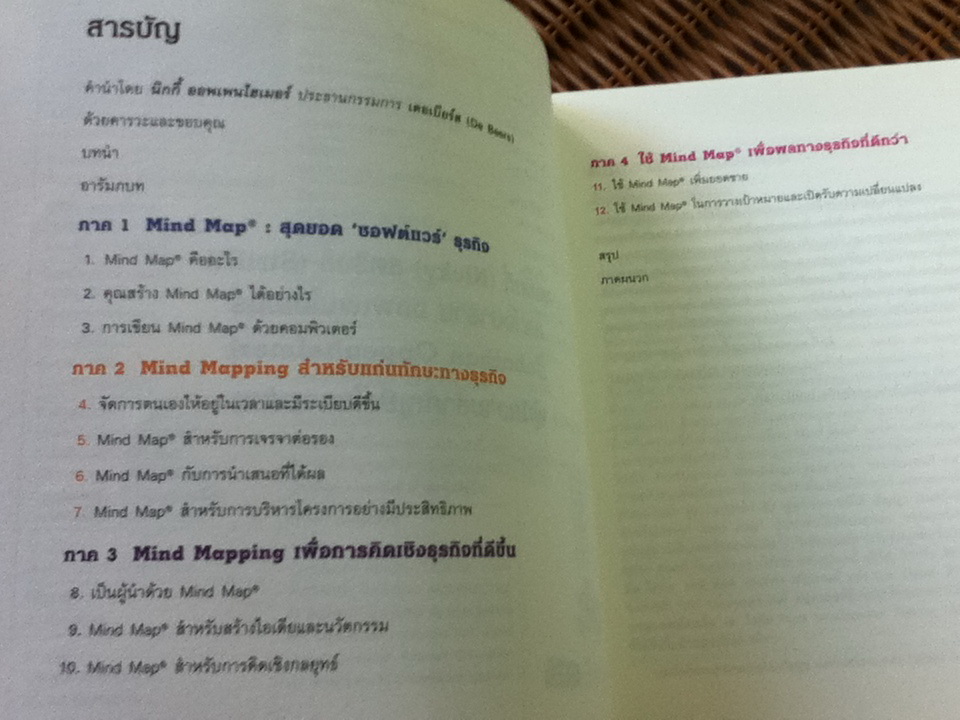 สารบัญ
คำนำโดย นิกกี้ ออพเพนไฮเมอร์ ประธานกรรมการ เดอเบียร์ส (De Beers)
ด้วยคารวะและขอบคุณ
บทนำ
อารัมภบท
ภาค 1 Mind Map® : สุดยอด 'ซอฟต์แวร์' ธุรกิจ
1. Mind Map® คืออะไร
2. คุณสร้าง Mind Map® ได้อย่างไร
3. การเขียน Mind Map® ด้วยคอมพิวเตอร์
ภาค 2 Mind Mapping สำหรับแก่นทักษะทางธุรกิจ
4. จัดการตนเองให้อยู่ในเวลาและมีระเบียบดีขึ้น
5. Mind Map® สำหรับการเจรจาต่อรอง
6. Mind Map® กับการนำเสนอที่ได้ผล
7. Mind Map® สำหรับการบริหารโครงการอย่างมีประสิทธิภาพ
ภาค 3 Mind Mapping เพื่อการคิดเชิงธุรกิจที่ดีขึ้น
8. เป็นผู้นำด้วย Mind Map®
9. Mind Map® สำหรับสร้างไอเดียและนวัตกรรม
10. Mind Map® สำหรับการคิดเชิงกลยุทธ์
ภาค 4 ใช้ Mind Map® เพื่อผลทางธุรกิจที่ดีกว่า
11. ใช้ Mind Map® เพิ่มยอดขาย
12. ใช้ Mind Map® ในการวางเป้าหมายและเปิดรับความเปลี่ยนแปลง
สรุป
ภาคผนวก